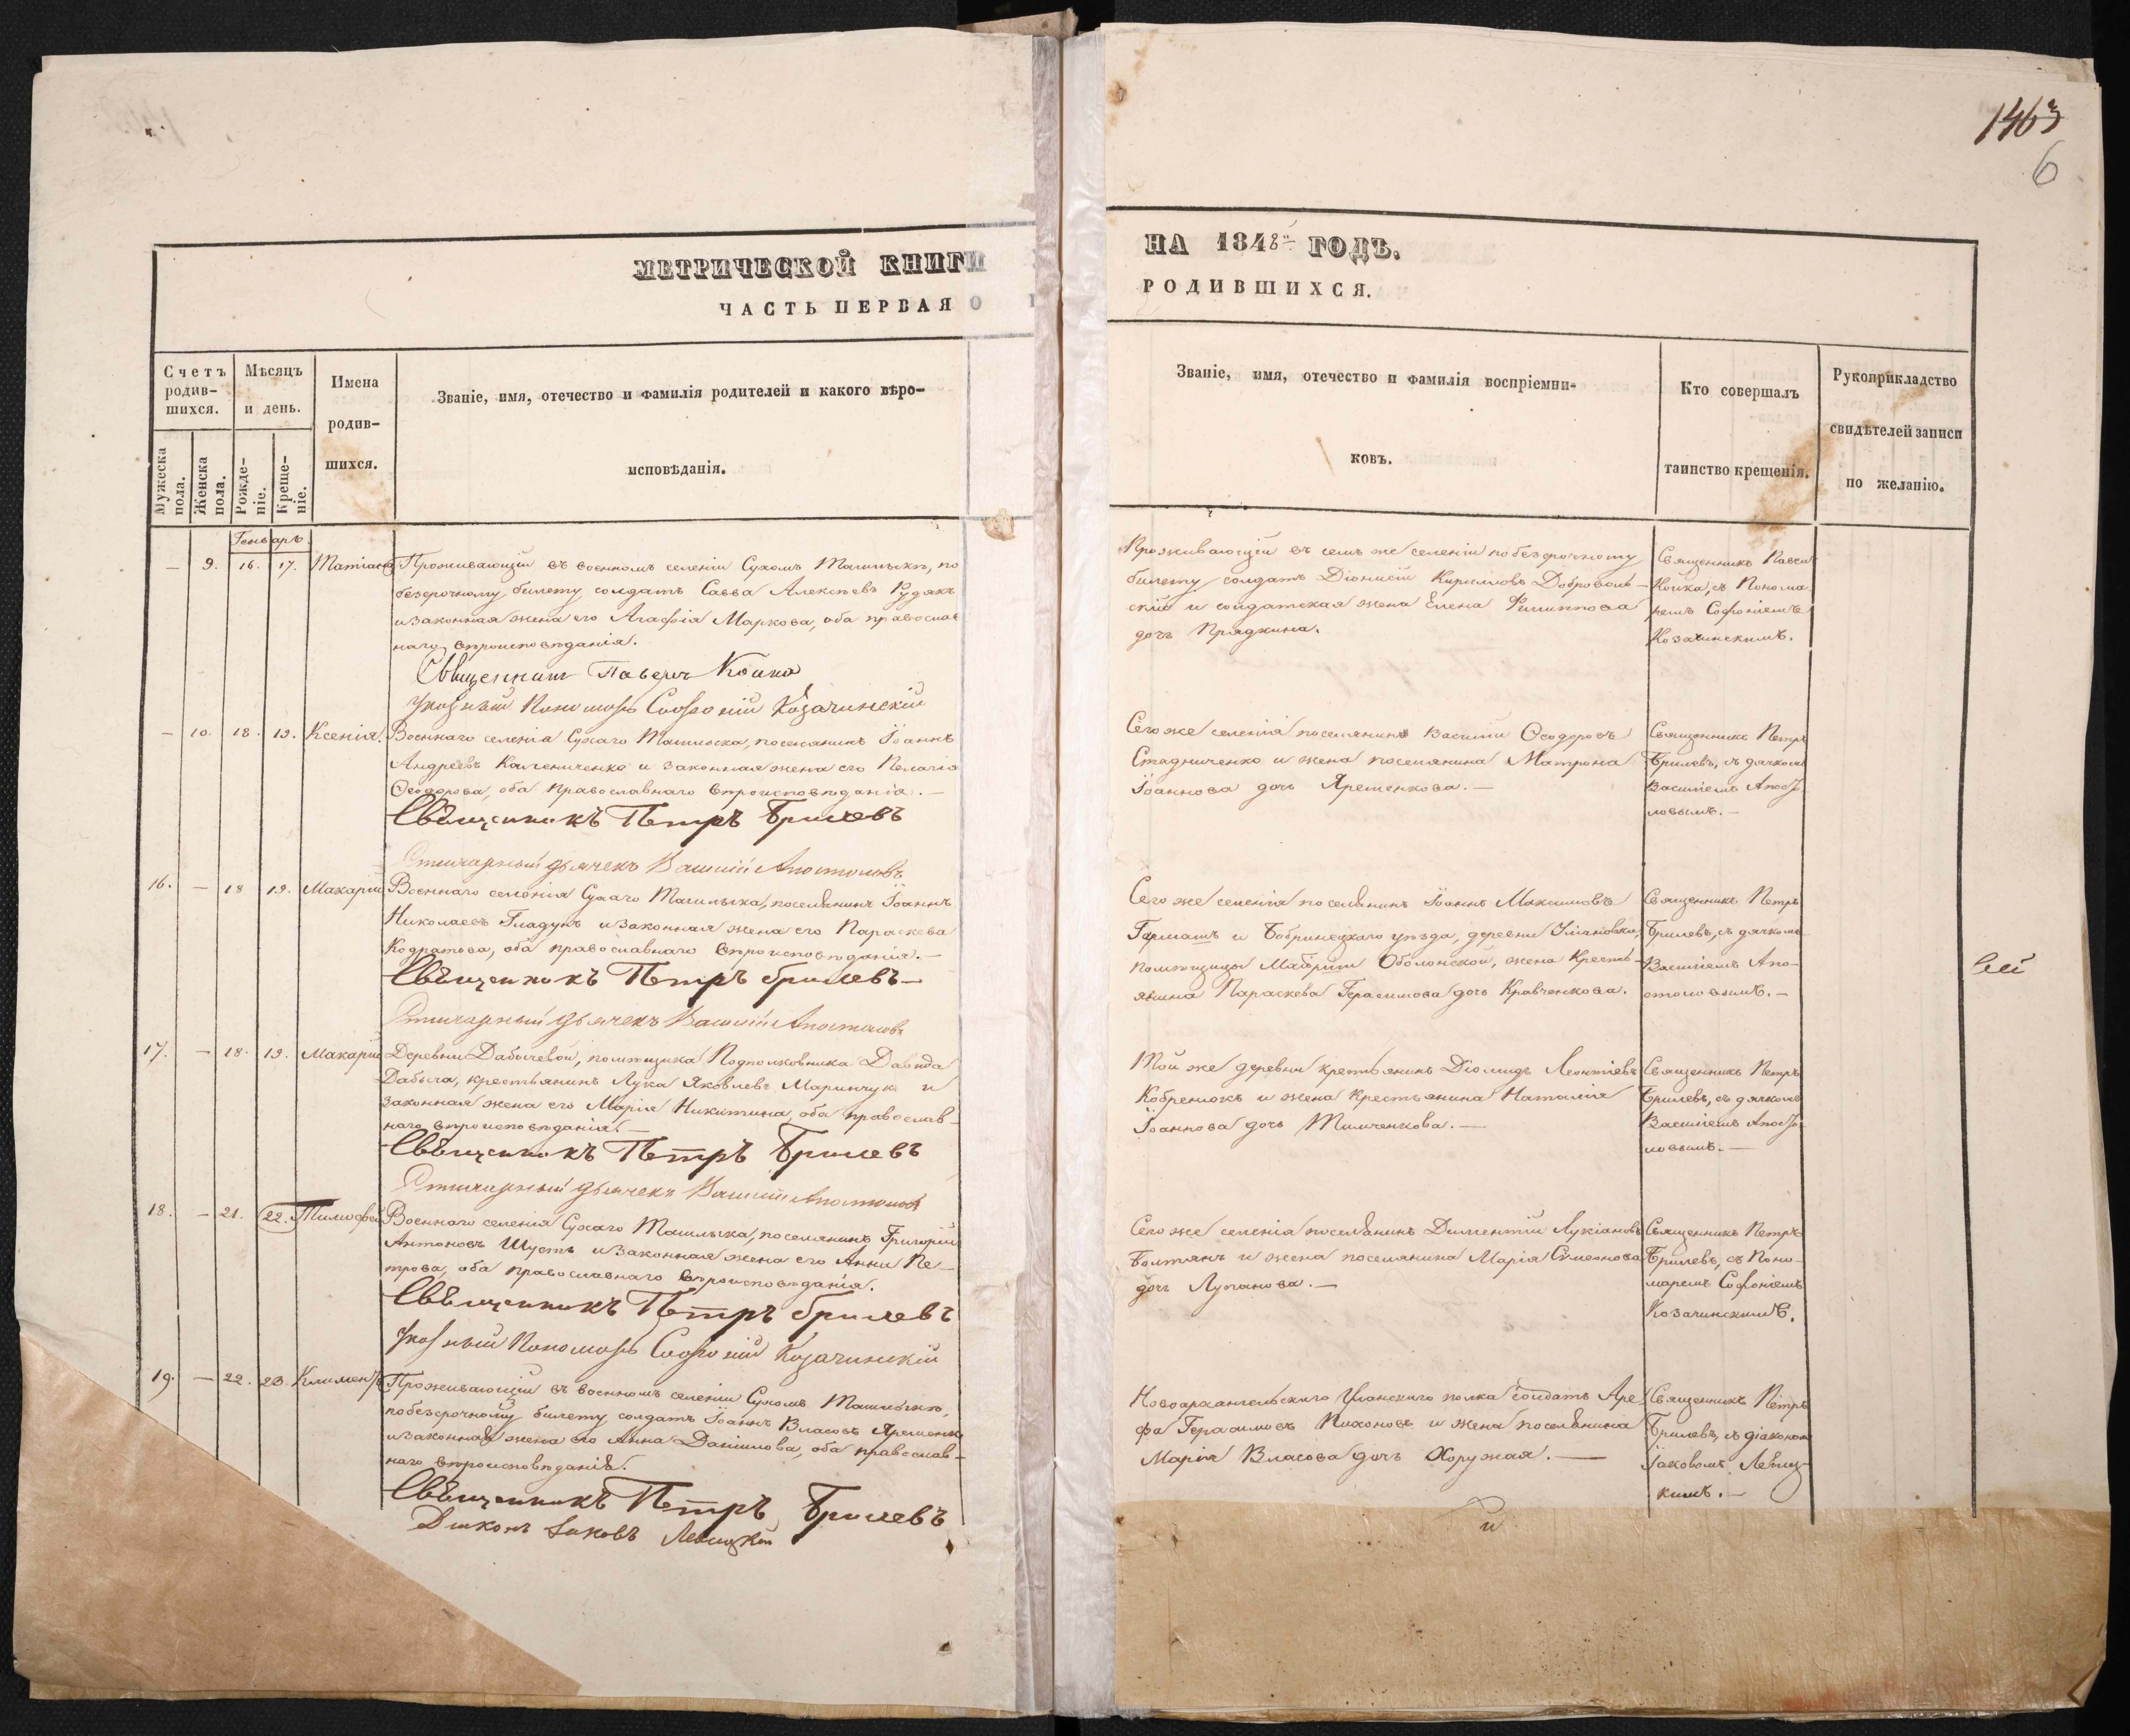 1463
6
МЕТРИЧЕСКОЙ КНИГИ
ЧАСТЬ ПЕРВАЯ О
НА 1848й ГОДЪ.
РОДИВШИХСЯ.
Счетъ родив-
шихся.
Мѣсяцъ
и день.
Мужеска пола.
Женска пола.
Рожде-
ніе.
Креще-
ніе.
Имена
родив-
шихся.
Званіе, имя, отечество и фамилія родителей и какого вѣро-
исповѣданія.
Званіе, имя, отечество и фамилія воспріемни-
ковъ.
Кто совершалъ
таинство крещенія.
Рукоприкладство
свидѣтелей записи
по желанію.
Генварь.
— 9. 16. 17. Проживающій въ военномъ селеніи Сухомъ Ташлыкѣ, по
безсрочному билету солдатъ Савва Алексѣевъ Рудякъ
и законная жена его Агафія Маркова, оба православ
наго вѣроисповѣданія.
Священникъ Павелъ Койка
Указный Пономарь Софроній Козачинскій
Проживающій въ семъ же селеніи по безсрочному
билету солдатъ Діонисій Кириловъ Доброволь-
скій и солдатская жена Елена Филиппова
дочь Прядкина.
Священникъ Павелъ
Койка, съ Понома
ремъ Софоніемъ
Козачинскимъ.
— 10. 18. 19. Ксенія. Военнаго селенія Сухаго Ташлыка, поселянинъ Іоаннъ
Андреевъ Калениченко и законная жена его Пелагія
Ѳеодорова, оба православнаго вѣроисповѣданія. —
Священникъ Петръ Брилевъ
Стихарный дьячекъ Василій Апостоловъ
Сего же селенія поселянинъ Василій Ѳеодоровъ
Стадниченко и жена поселянина Матрона
Іоаннова дочь Яременкова. —
Священникъ Петръ
Брилевъ, съ дячкомъ
Василіемъ Апосто
ловымъ. —
16. — 18 19. Макарій Военнаго селенія Сухаго Ташлыка, поселянинъ Іоаннъ
Николаевъ Гладунъ и законная жена его Параскева
Кодратова, оба православнаго вѣроисповѣданія. —
Священникъ Петръ Брилевъ —
Стихарный дьячекъ Василій Апостоловъ
Сего же селенія поселянинъ Іоаннъ Максимовъ
Гармашъ и Бобринецкаго уѣзда, деревни
помѣщицы Оболонской, жена кресть-
янина Параскева Герасимова дочь Кравченкова.
Священникъ Петръ
Брилевъ, съ дячкомъ
Василіемъ Апо-
столовымъ. —
17. — 18. 19. Макарій Деревни Дабычевой, помѣщика Подполковника Давида
Дабыча, крестьянинъ Лука Яковлевъ Маринчукъ и
законная жена его Марія Никитина, оба православ-
наго вѣроисповѣданія. —
Священникъ Петръ Брилевъ
Стихарный дьячекъ Василій Апостоловъ
Той же деревни крестьянинъ Діомидъ Леонтіевъ
Кобренюкъ и жена крестьянина Наталія
Іоаннова дочь Тимченкова. —
Священникъ Петръ
Брилевъ, съ дячкомъ
Василіемъ Апосто
ловымъ. —
18. — 21. 22. Тимофей Военнаго селенія Сухаго Ташлыка, поселянинъ Григорій
Антоновъ Шустъ и законная жена его Анна Пе-
трова, оба православнаго вѣроисповѣданія.
Священникъ Петръ Брилевъ
Указный Пономарь Софроній Козачинскій
Сего же селенія поселянинъ Дементій Лукіановъ
Болтянъ и жена поселянина Марія Симеонова
дочь Лупанова. —
Священникъ Петръ
Брилевъ, съ Поно-
маремъ Софоніемъ
Козачинскимъ.
19. — 22. 23. Климентъ Проживающій въ военномъ селеніи Сухомъ Ташлыкѣ,
по безсрочному билету солдатъ Іоаннъ Власовъ Яременко
и законная жена его Анна Даніилова, оба православ-
наго вѣроисповѣданія.
Священникъ Петръ Брилевъ
Діаконъ Іаковъ Левицкій
Новоархангельскаго Уланскаго полка солдатъ Аре
фа Герасимовъ Пихоновъ и жена поселянина
Марія Власова дочь Хоружая. —
Священникъ Петръ
Брилевъ, съ діакономъ
Іаковомъ Левиц-
кимъ. —